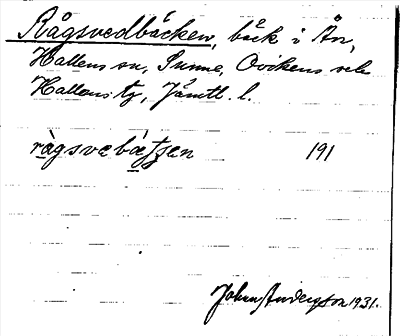 Rågsvedbäcken, bäck i Ån,
Hallens sn, Sunne, Ovikens och
Hallens tg, Jämtl. l.
rågsvebætʃen 191
Johan Andersson 1931.